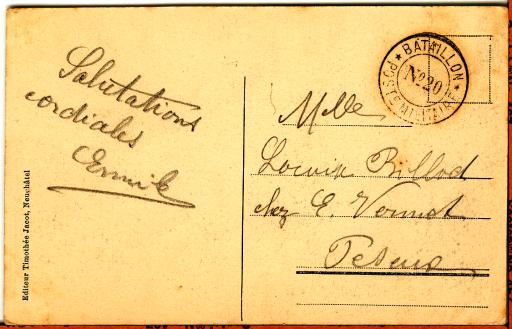 Salutations
cordiales
Ermile
Editeur Timothée Jacot, Neuchâtel
BATAILLON
No 20
POSTE MILITAIRE
Melle
Billod
chez E. Vermot
Peseux